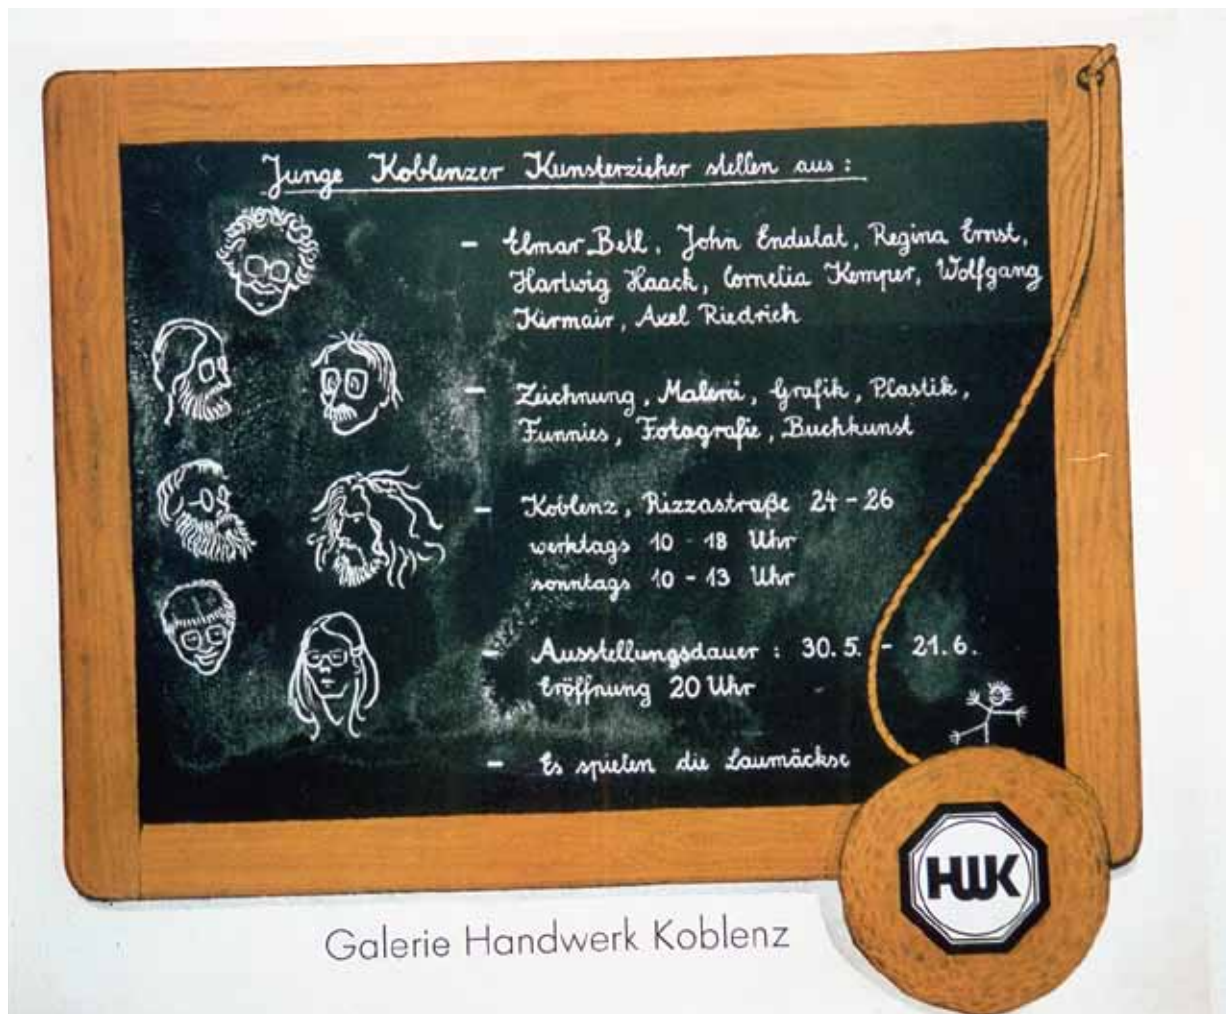 Junge Koblenzer Kunsterzieher stellen aus:
- Elmar Bell, John Endulat, Regina Ernst,
Hartwig Haack, Cornelia Kemper, Wolfgang
Kirmair, Axel Riedrich
- Zeichnung, Malerei, Grafik, Plastik,
Funnies, Fotografie, Buchkunst
- Koblenz, Rizzastraße 24-26
werktags 10-18 Uhr
sonntags 10-13 Uhr
- Ausstellungsdauer: 30.5. - 21.6.
Eröffnung 20 Uhr
- Es spielen die Laumäckse
HWK
Galerie Handwerk Koblenz